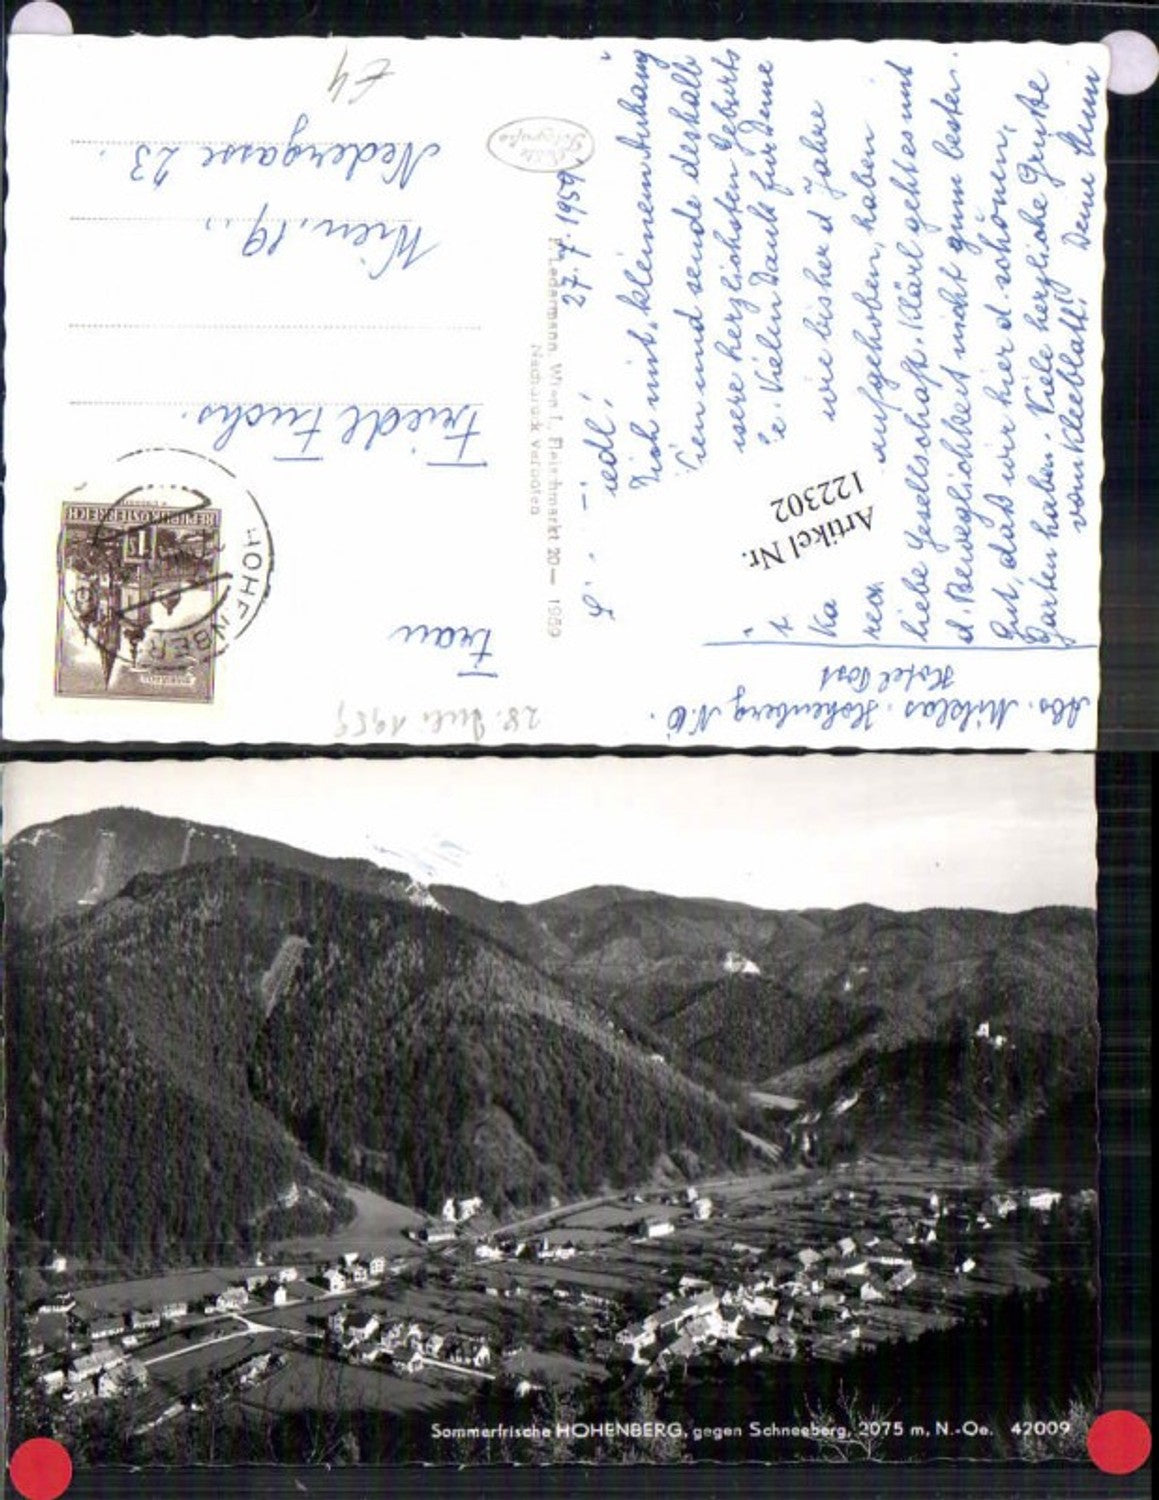 Abs. Miklas. Hohenberg N.Ö.
Hotel Post
27.7.1959
iedl!
Dich mit „kleinem Anhang
Wien und sende deshalb
sere herzlichsten Geburts
e. Vielen Dank für Deine
t wie bisher d Jahre
Ka
rech aufgehoben, haben
liebe Gesellschaft. Klärl geht es mit
d. Beweglichkeit nicht zum besten.
Gut, daß wir hier d. schönen,
Garten haben. Viele herzliche Grüße
vom Kleeblatt! Deine
Artikel Nr.
122302
P. Ledermann, Wien I., Fleischmarkt 20 — 1959
Nachdruck verboten
Echte
Fotografie
28. Juli 1959
REPUBLIK ÖSTERREICH
HOHENBERG
Frau
Friedl Fuchs.
Wien, 19.,
Nedergasse 23.
€4
Sommerfrische HOHENBERG, gegen Schneeberg, 2075 m, N.-Oe. 42009